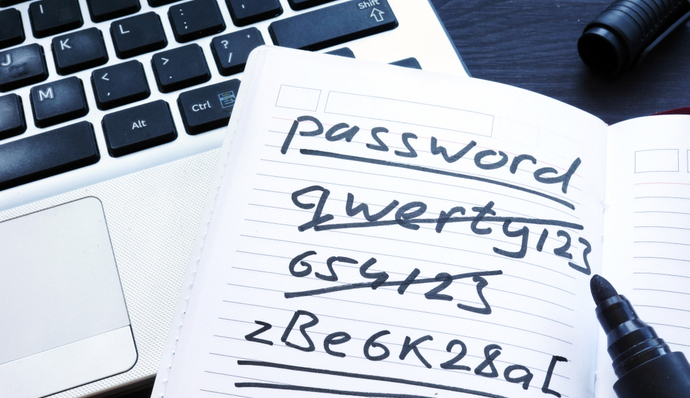 Shift
J
K
L
< ,
> .
? /
M
Alt
Ctrl
password
qwerty123
654123
zBe6K28a[